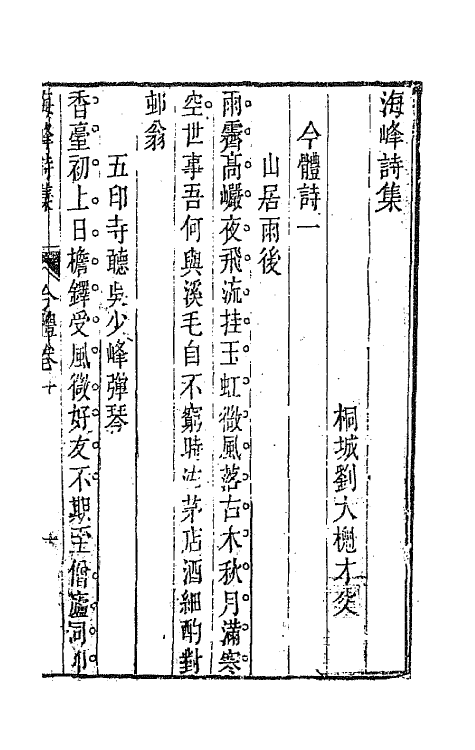 海峰詩集
桐城劉大櫆才甫
今體詩一
山居雨後
雨霽高巖夜飛流挂玉虹微風落古木秋月滿寒
空世事吾何與溪毛自不窮時沽茅店酒細酌對
邨翁
五印寺聽吳少峰彈琴
香臺初上日檐鐸受風微好友不期至僧廬同叩
海峰詩集 今體卷